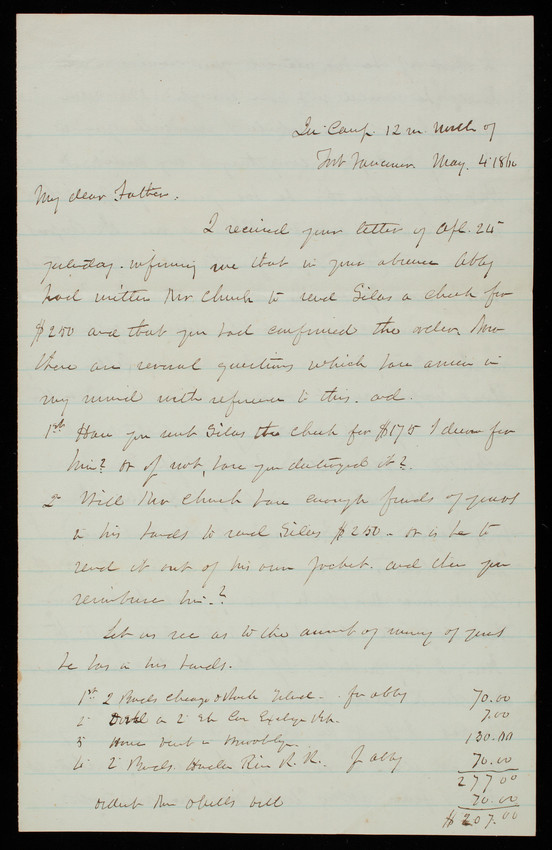 In Camp 12 m North of
Fort Vancouver May. 4 186
My dear Father,
I received your letter of Apl. 25
yesterday. informing me that in your absence Abby
had written Mr Church to send Silas a check for
$250 and that you had confirmed the order. Now
there are several questions which have arisen in
my mind with reference to this. and.
1st Have you sent Silas the check for $175 I drew for
him? Or if not, have you destroyed it?
2d Will Mr Church have enough funds of yours
in his hands to send Silas $250 - or is he to
send it out of his own pocket. and then you
reimburse him.?
Let us see as to the amount of money of yours
he has in his hands.
1st 2 Bonds Chicago & Rock Island - for Abby 70.00
2d on 2 7.00
3 House rent in Brooklyn 130.00
4. 2 Bonds. Hudson River R. R. for Abby 70.00
277 00
deduct bill 70.00
$207.00